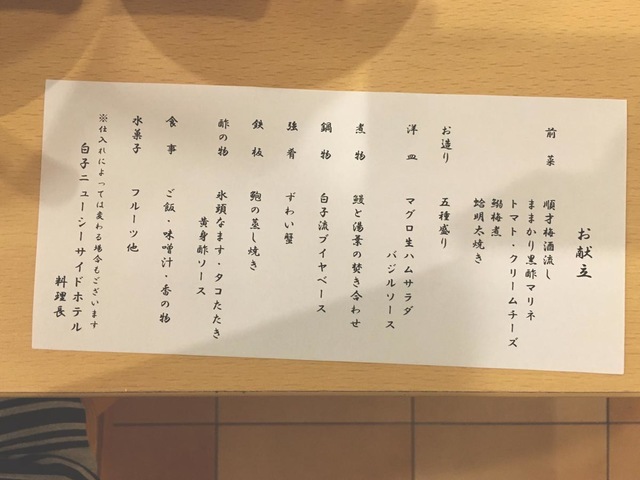 お献立
前菜 順才梅酒流し
ままかり黒酢マリネ
トマト・クリームチーズ
鰯梅煮
蛤明太焼き
お造り 五種盛り
洋皿 マグロ生ハムサラダ
バジルソース
煮物 鰻と湯葉の焚き合わせ
鍋物 白子流ブイヤベース
強肴 ずわい蟹
鉄板 鮑の蒸し焼き
酢の物 氷頭なます・タコたたき
黄身酢ソース
食事 ご飯・味噌汁・香の物
水菓子 フルーツ他
※仕入れによっては変わる場合もございます
白子ニューシーサイドホテル
料理長